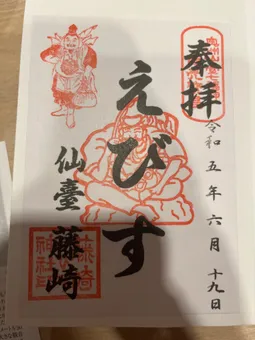 奉拝
令和五年六月十九日
えびす
仙臺
藤崎